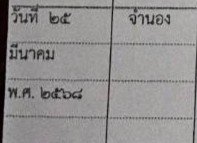 วันที่ ๒๕ จำนอง
มีนาคม
พ.ศ. ๒๕๖๘